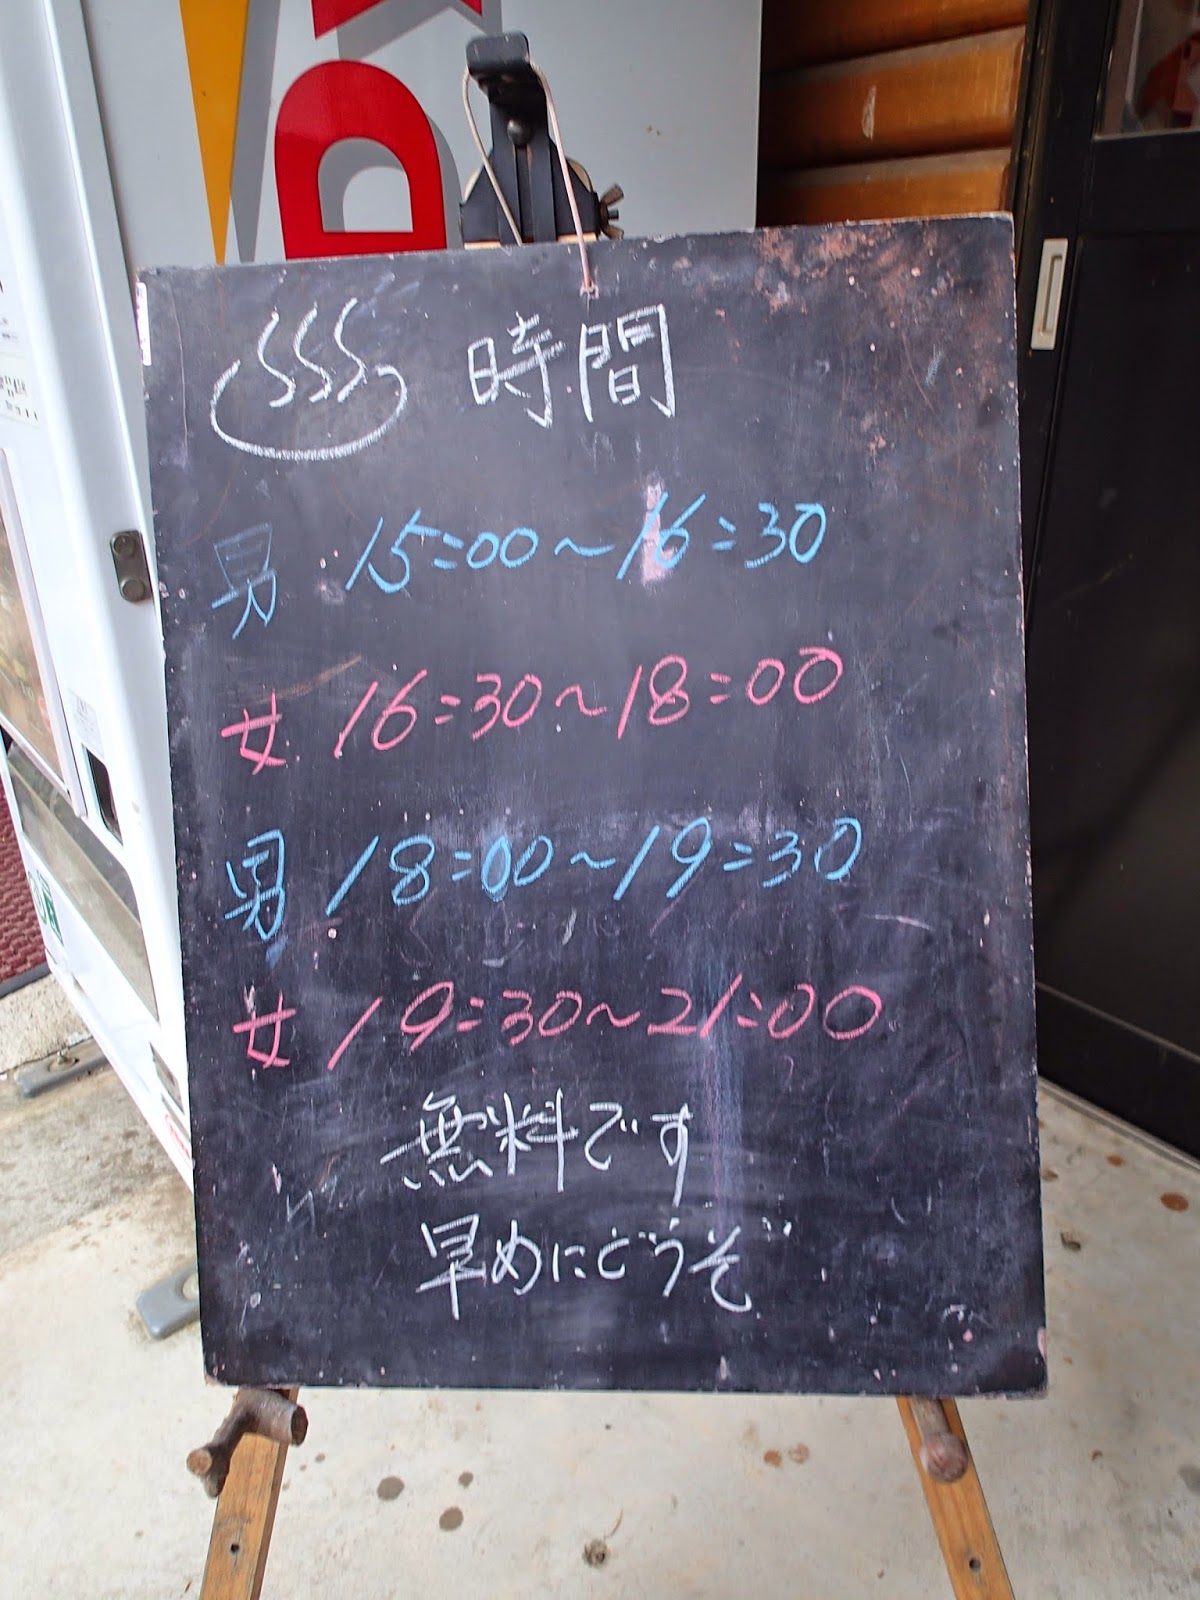 ♨ 時間
男 15:00〜16:30
女 16:30〜18:00
男 18:00〜19:30
女 19:30〜21:00
無料です
早めにどうぞ